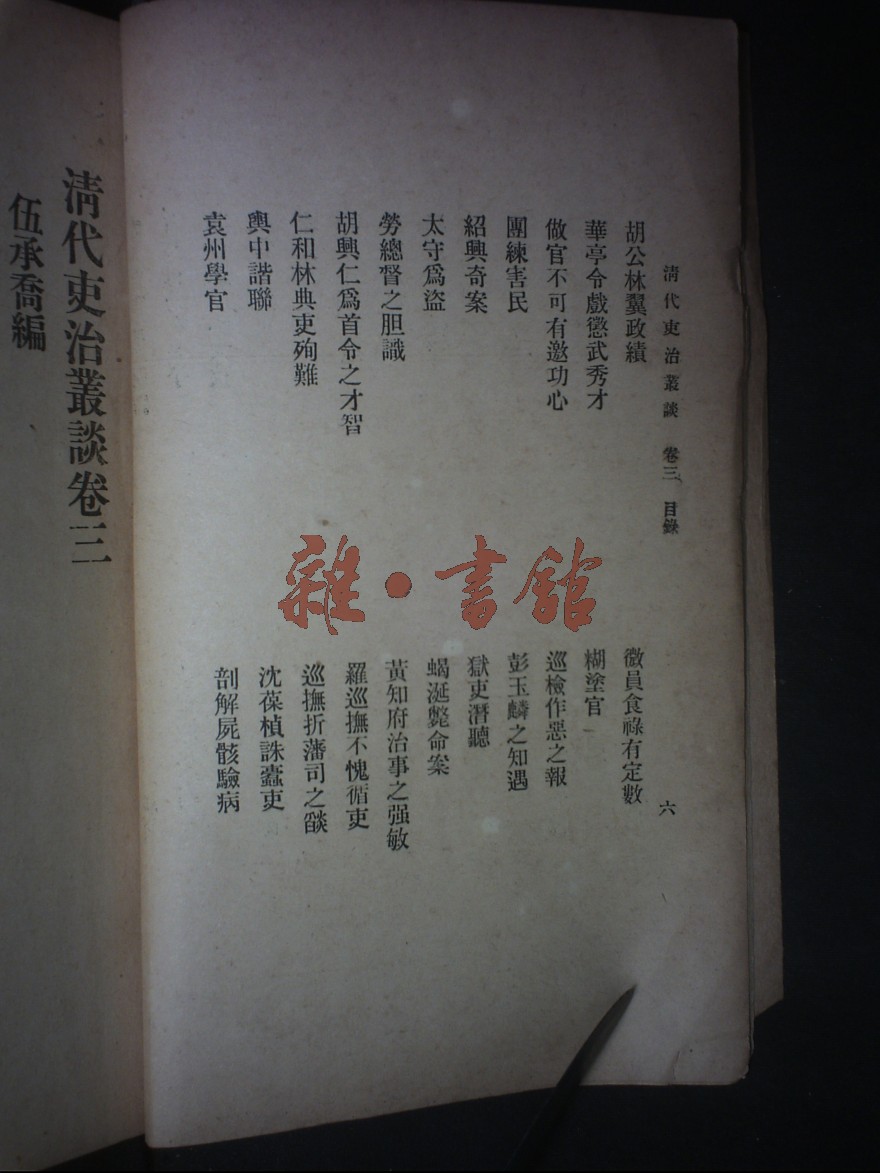 清代吏治叢談 卷三 目錄 六
胡公林翼政績
華亭令戲懲武秀才
做官不可有邀功心
團練害民
紹興奇案
太守爲盜
勞總督之胆識
胡興仁爲首令之才智
仁和林典吏殉難
輿中諧聯
袁州學官
微員食祿有定數
糊塗官
巡檢作惡之報
彭玉麟之知遇
獄吏潛聽
蝎涎斃命案
黃知府治事之强敏
羅巡撫不愧循吏
巡撫折藩司之燄
沈葆楨誅蠹吏
剖解屍骸驗病
雜·書館
清代吏治叢談卷三
伍承喬編